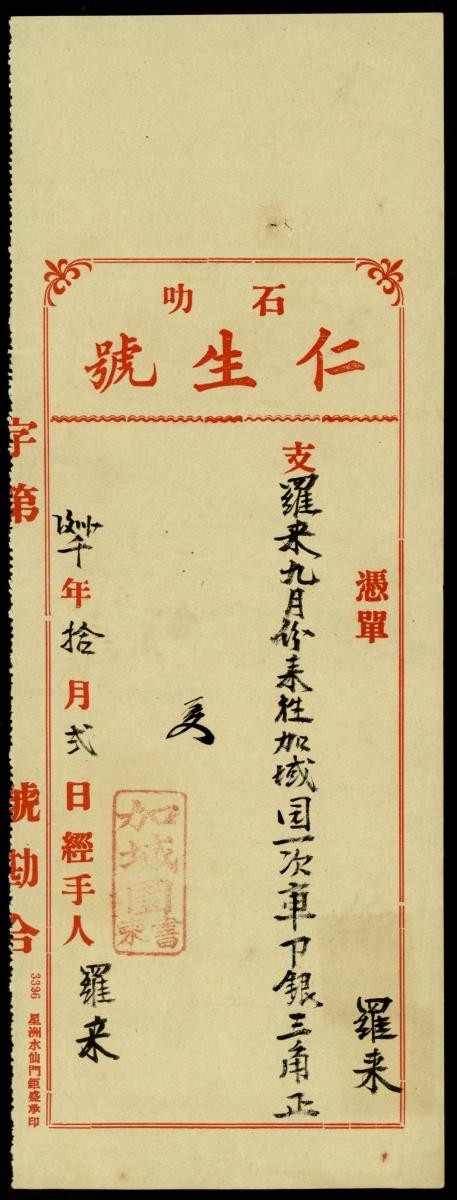 石叻
仁生號
憑單
羅來
支羅來九月份來往加城園一次車卩銀三角正
年拾月弍日經手人羅來
加城園書柬
字第 號勘合
3396 星洲水仙門鉅盛承印